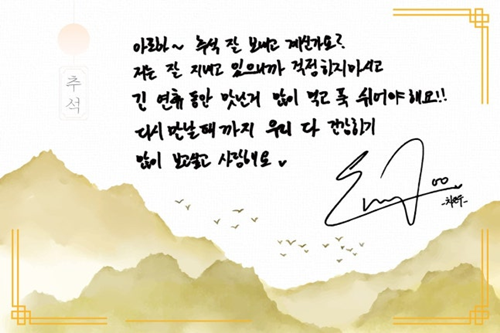 추석
아로하~ 추석 잘 보내고 계신가요?
저는 잘 지내고 있으니까 걱정하지마시고
긴 연휴 동안 맛난거 많이 먹고 푹 쉬어야 해요!!
다시 만날때 까지 우리 다 건강하기
많이 보고싶고 사랑해요